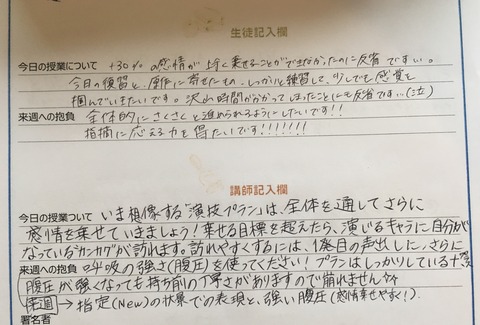 生徒記入欄
今日の授業について +30%の感情が上手く乗せることができなかったのに反省です…。
今日の復習と、原作に寄せたもの、しっかりと練習して、少しでも感覚を
掴んでいきたいです。沢山時間がかかってしまったことにも反省です…(泣)
来週への抱負 全体的にさくさくと進められるようにしたいです!!
指摘に応える力を得たいです!!!!!!!
講師記入欄
今日の授業ついて いま想像する「演技プラン」は、全体を通してさらに
感情を乗せて いきましょう!乗せる目標を超えたら、演じるキャラに自分が
なっている"カンカク"が訪れます。訪れやすくするには、1発目の声出しに、さらに
来週への抱負 呼吸の強さ(腹圧)を使ってください!プランはしっかりしている
腹圧が強くなっても持ち前の丁寧さがありますので崩れません
来週→指定(New)の状景での表現と、強い腹圧(感情乗せやすく!).
署名者